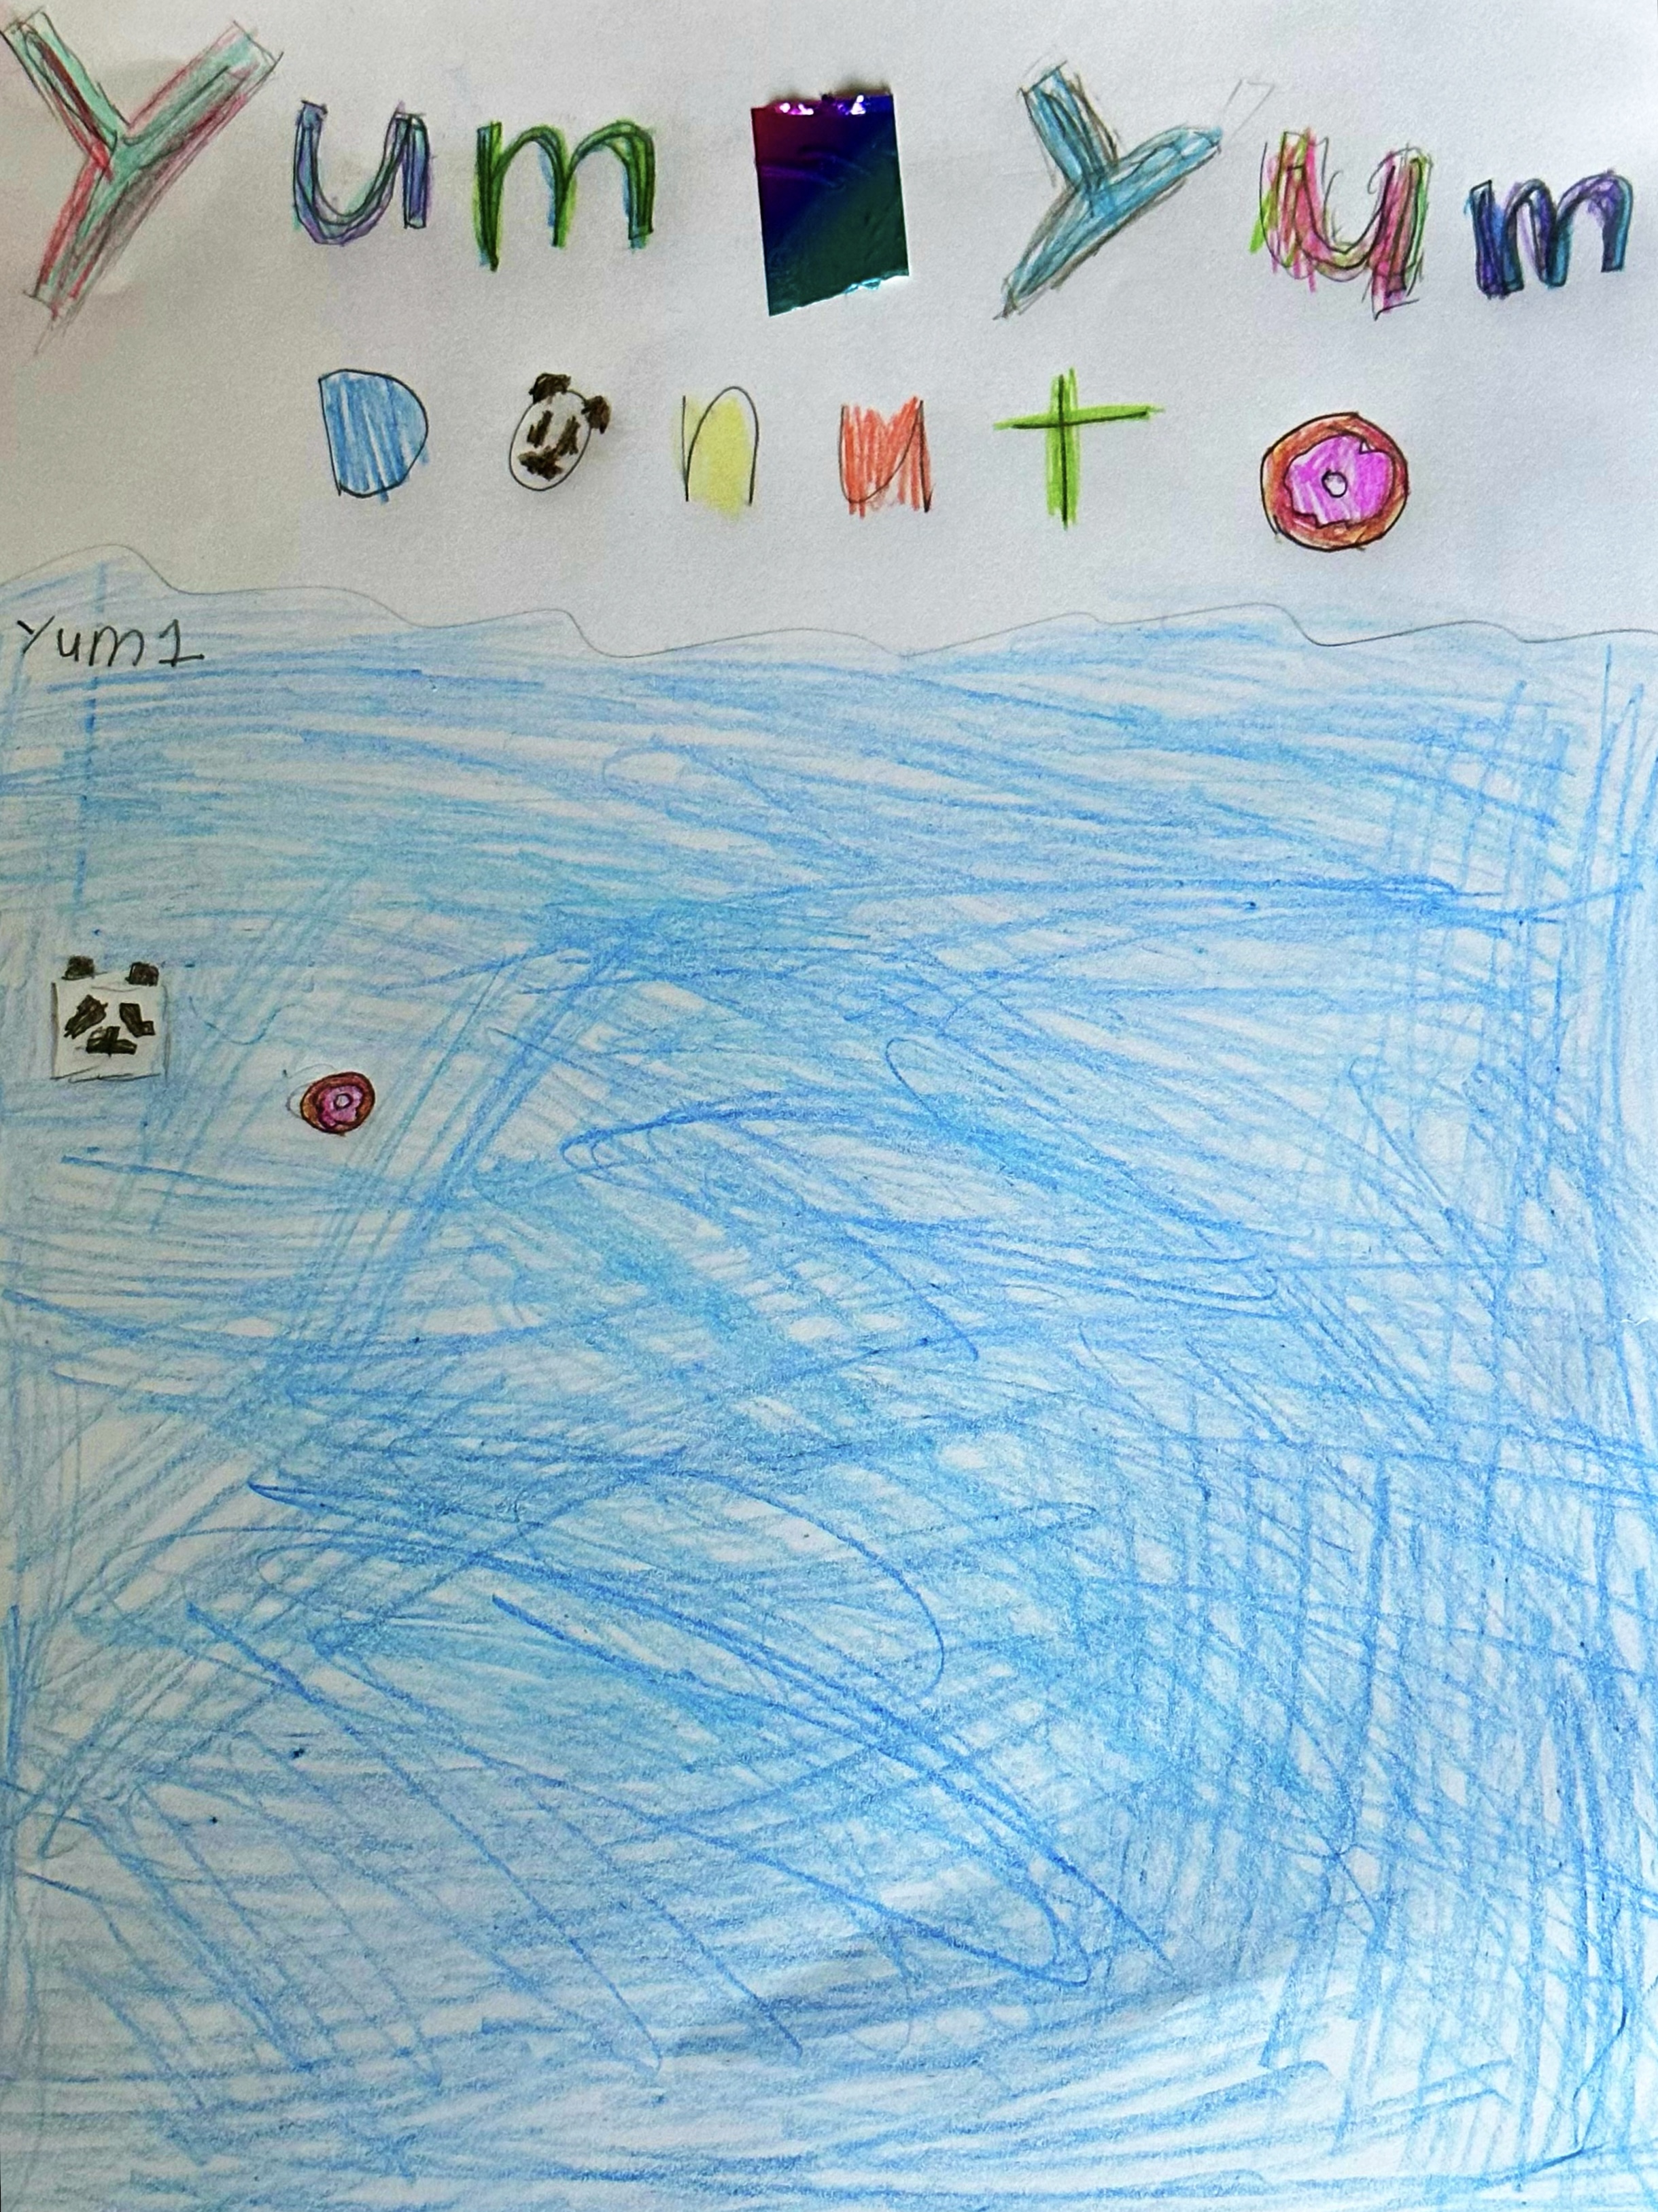 Yum Yum
Donut
Yum1